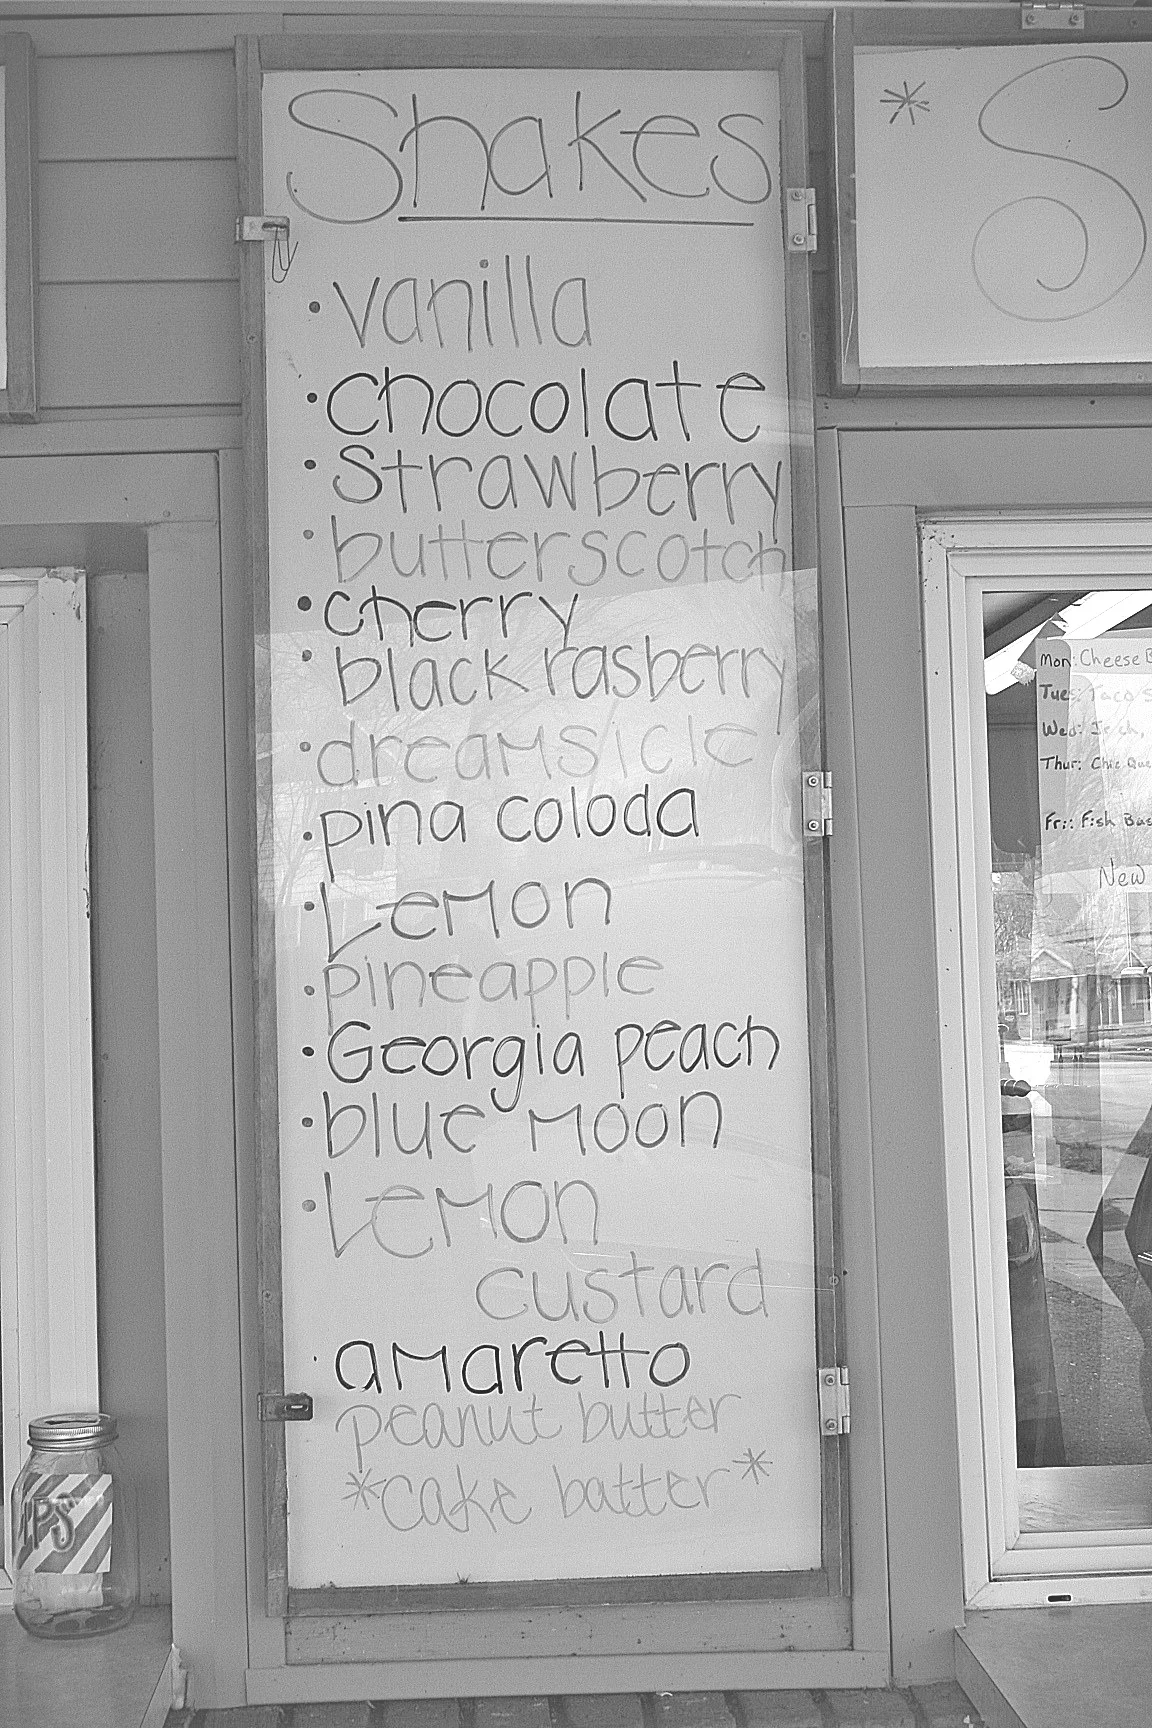 Shakes
• vanilla
• chocolate
• Strawberry
• butterscotch
• cherry
• black rasberry
• dreamsicle
• pina coloda
• Lemon
• pineapple
• Georgia peach
• blue moon
• Lemon
custard
• amaretto
peanut butter
*cake batter*
* S
Mon: Cheese B
Tues: Taco S
Wed:
Thur:
Fri: Fish Bas
New